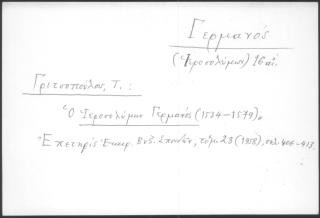 Γερμανός
(Ἱεροσολύμων) 16 αἰ.
Γριτσοπούλος, Τ. :
Ὁ Ἱεροσολύμων Γερμανός (1534-1579),
Ἐπετηρὶς Ἑταιρ. Βυζ. Σπουδῶν, τόμ. 28 (1958), σελ. 406-413.